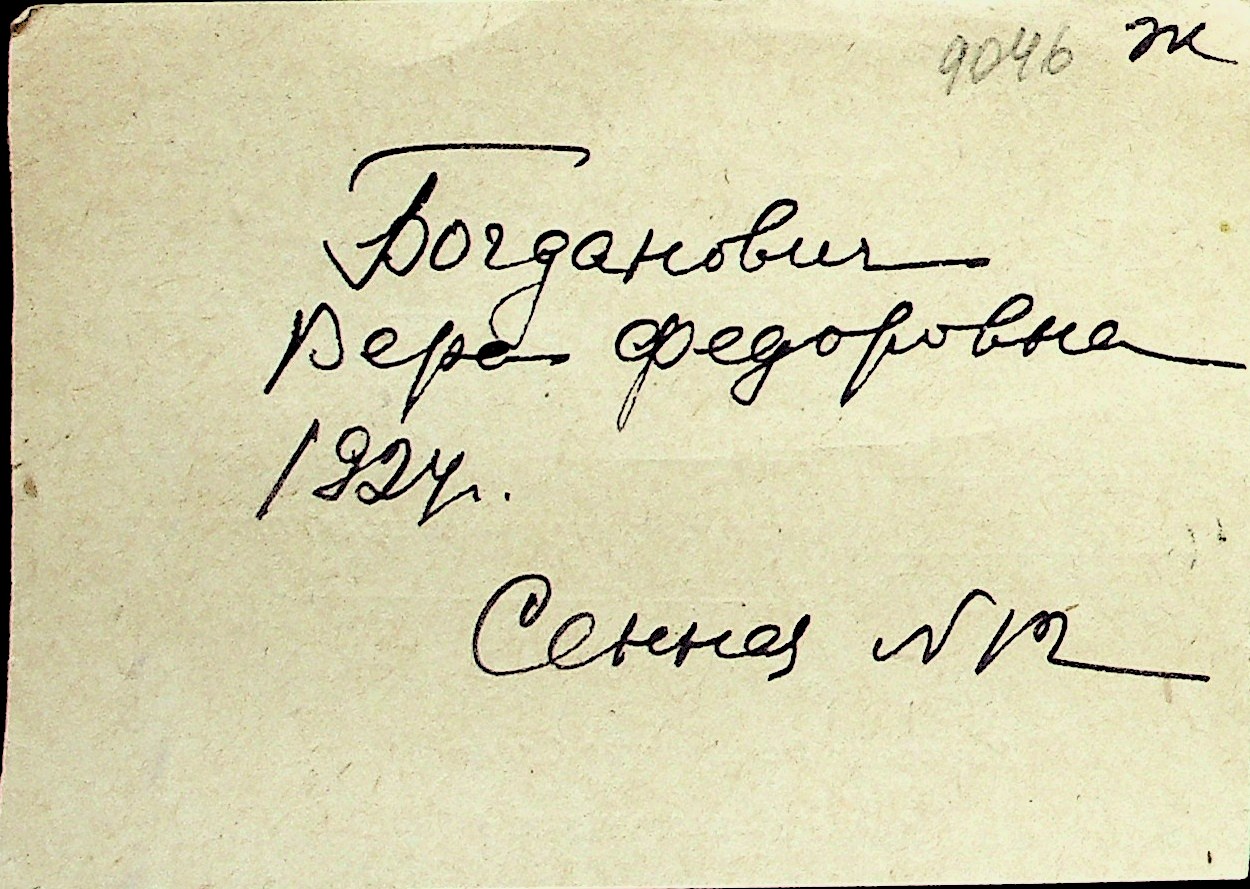 9046 ж
Богданович
Вера Федоровна
1924г.
Сенная N 12